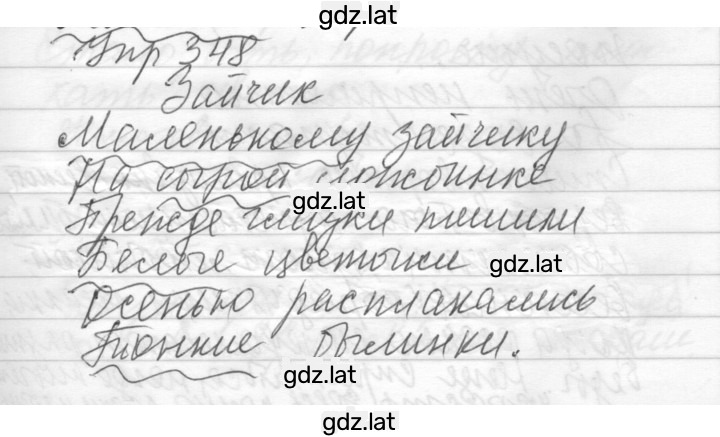 gdz.lat
Упр 348
Зайчик
Маленькому зайчику
На сырой ложбинке
gdz.lat
Прежде глазки тешили
Белые цветочки
gdz.lat
Осенью расплакались
Тонкие былинки.
gdz.lat
gdz.lat